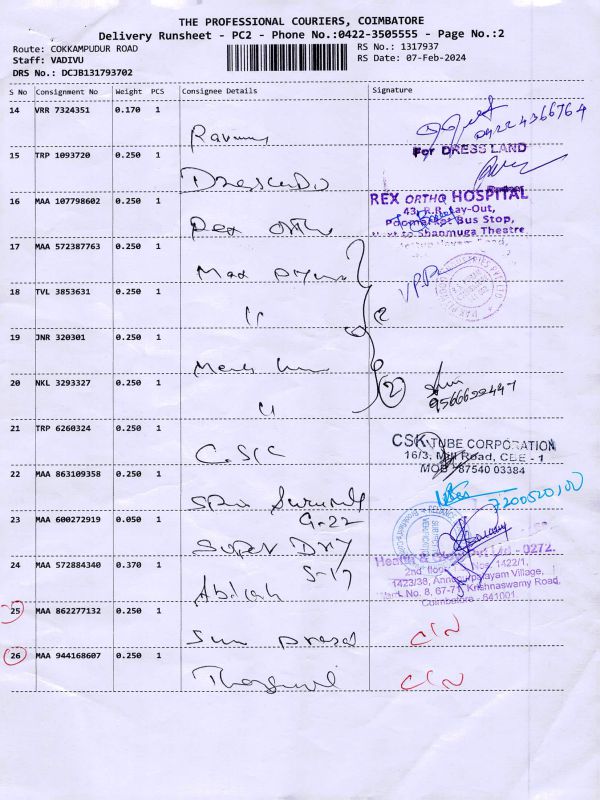 THE PROFESSIONAL COURIERS, COIMBATORE
Delivery Runsheet - PC2 - Phone No.:0422-3505555 - Page No.:2
Route: COKKAMPUDUR ROAD
Staff: VADIVU
DRS No.: DCJB131793702
RS No.: 1317937
RS Date: 07-Feb-2024
S No Consignment No Weight PCS Consignee Details Signature
14 VRR 7324351 0.170 1
0422 4366764
For DRESS LAND
15 TRP 1093720 0.250 1
16 MAA 107798602 0.250 1 Rex ortho
REX ORTHO HOSPITAL
43, R.R. Lay-Out,
Poomarket Bus Stop,
Next to Shanmuga Theatre
17 MAA 572387763 0.250 1 Max
18 TVL 3853631 0.250 1 "
19 JNR 320301 0.250 1
20 NKL 3293327 0.250 1 "
2
9566622447
21 TRP 6260324 0.250 1 C.S.K
CSK TUBE CORPORATION
16/3, Mill Road, CBE - 1
MOB : 87540 03384
22 MAA 863109358 0.250 1
7200520100
23 MAA 600272919 0.050 1 Super Dry
G-22
24 MAA 572884340 0.370 1
S-17
Ltd - 0272.
2nd floor, Nos. 1422/1,
1423/38, Annupparpalayam Village,
Ward No. 8, 67-71, Krishnaswamy Road,
Coimbatore - 641001
25 MAA 862277132 0.250 1 Sun C/N
26 MAA 944168607 0.250 1 C/N